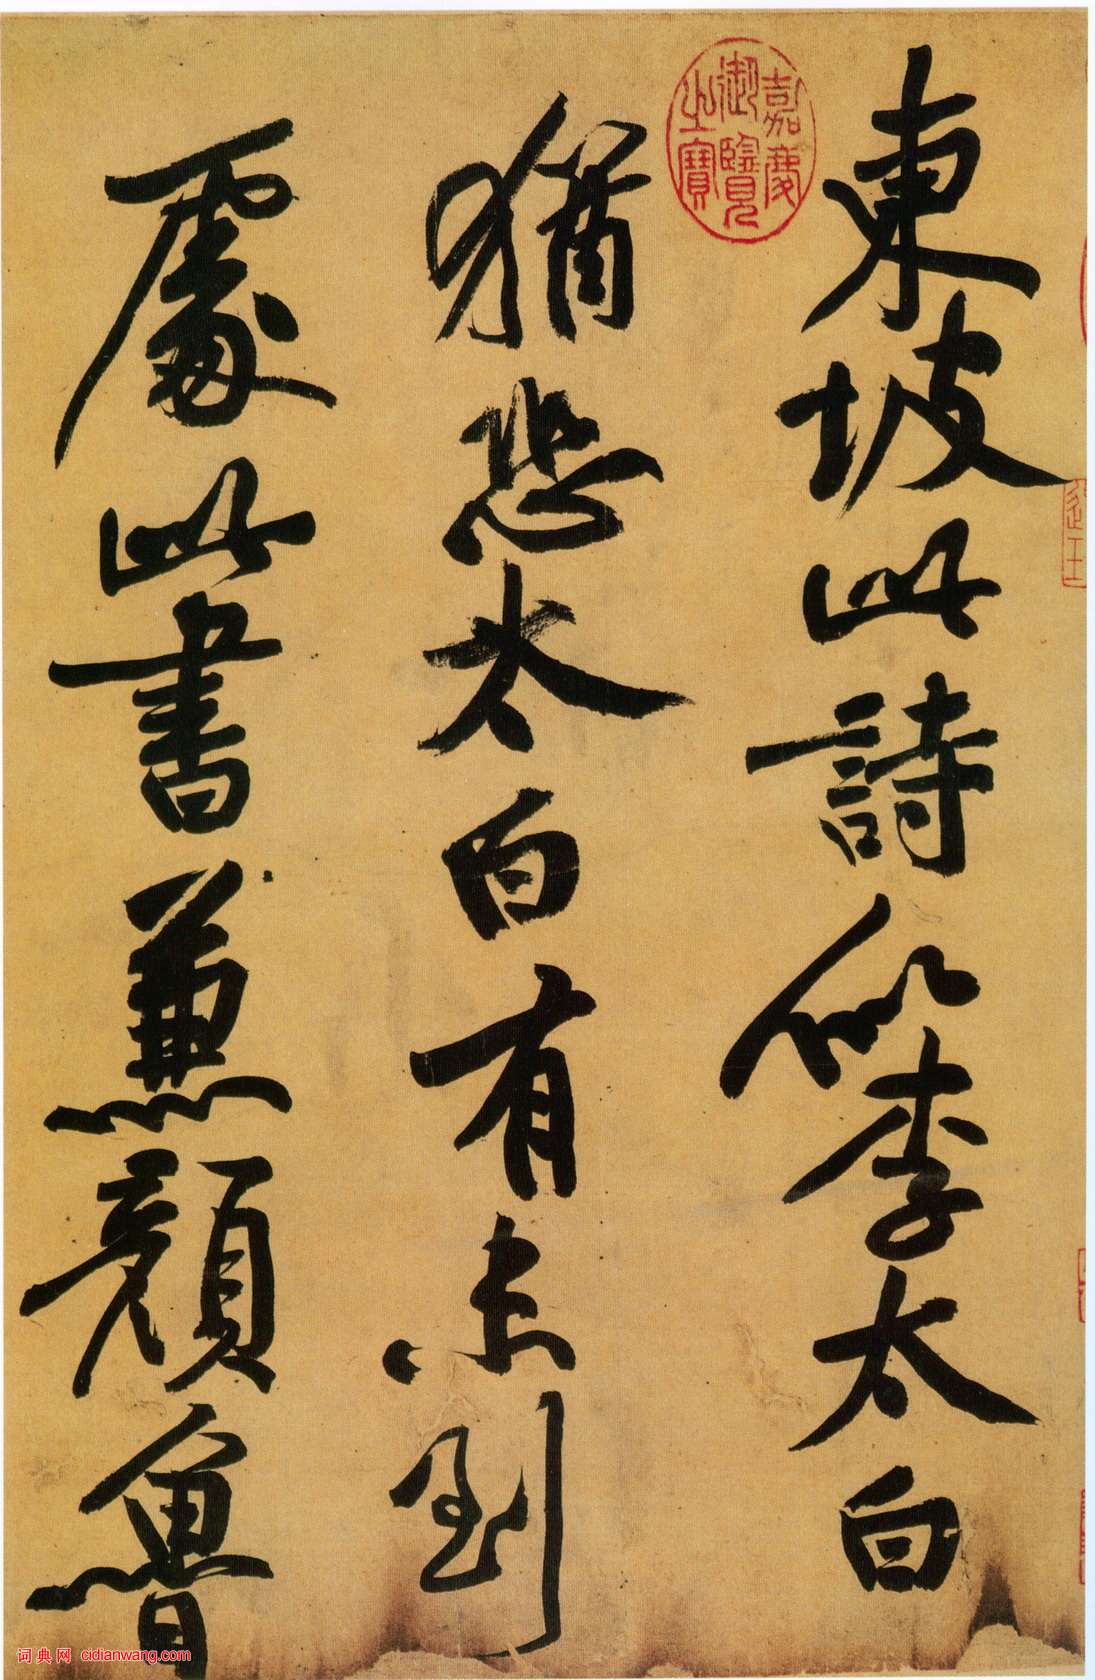 東坡此詩似李太白
猶恐太白有未到
處此書兼顏魯
嘉慶
御覽
之寶
词典网 cidianwang.com